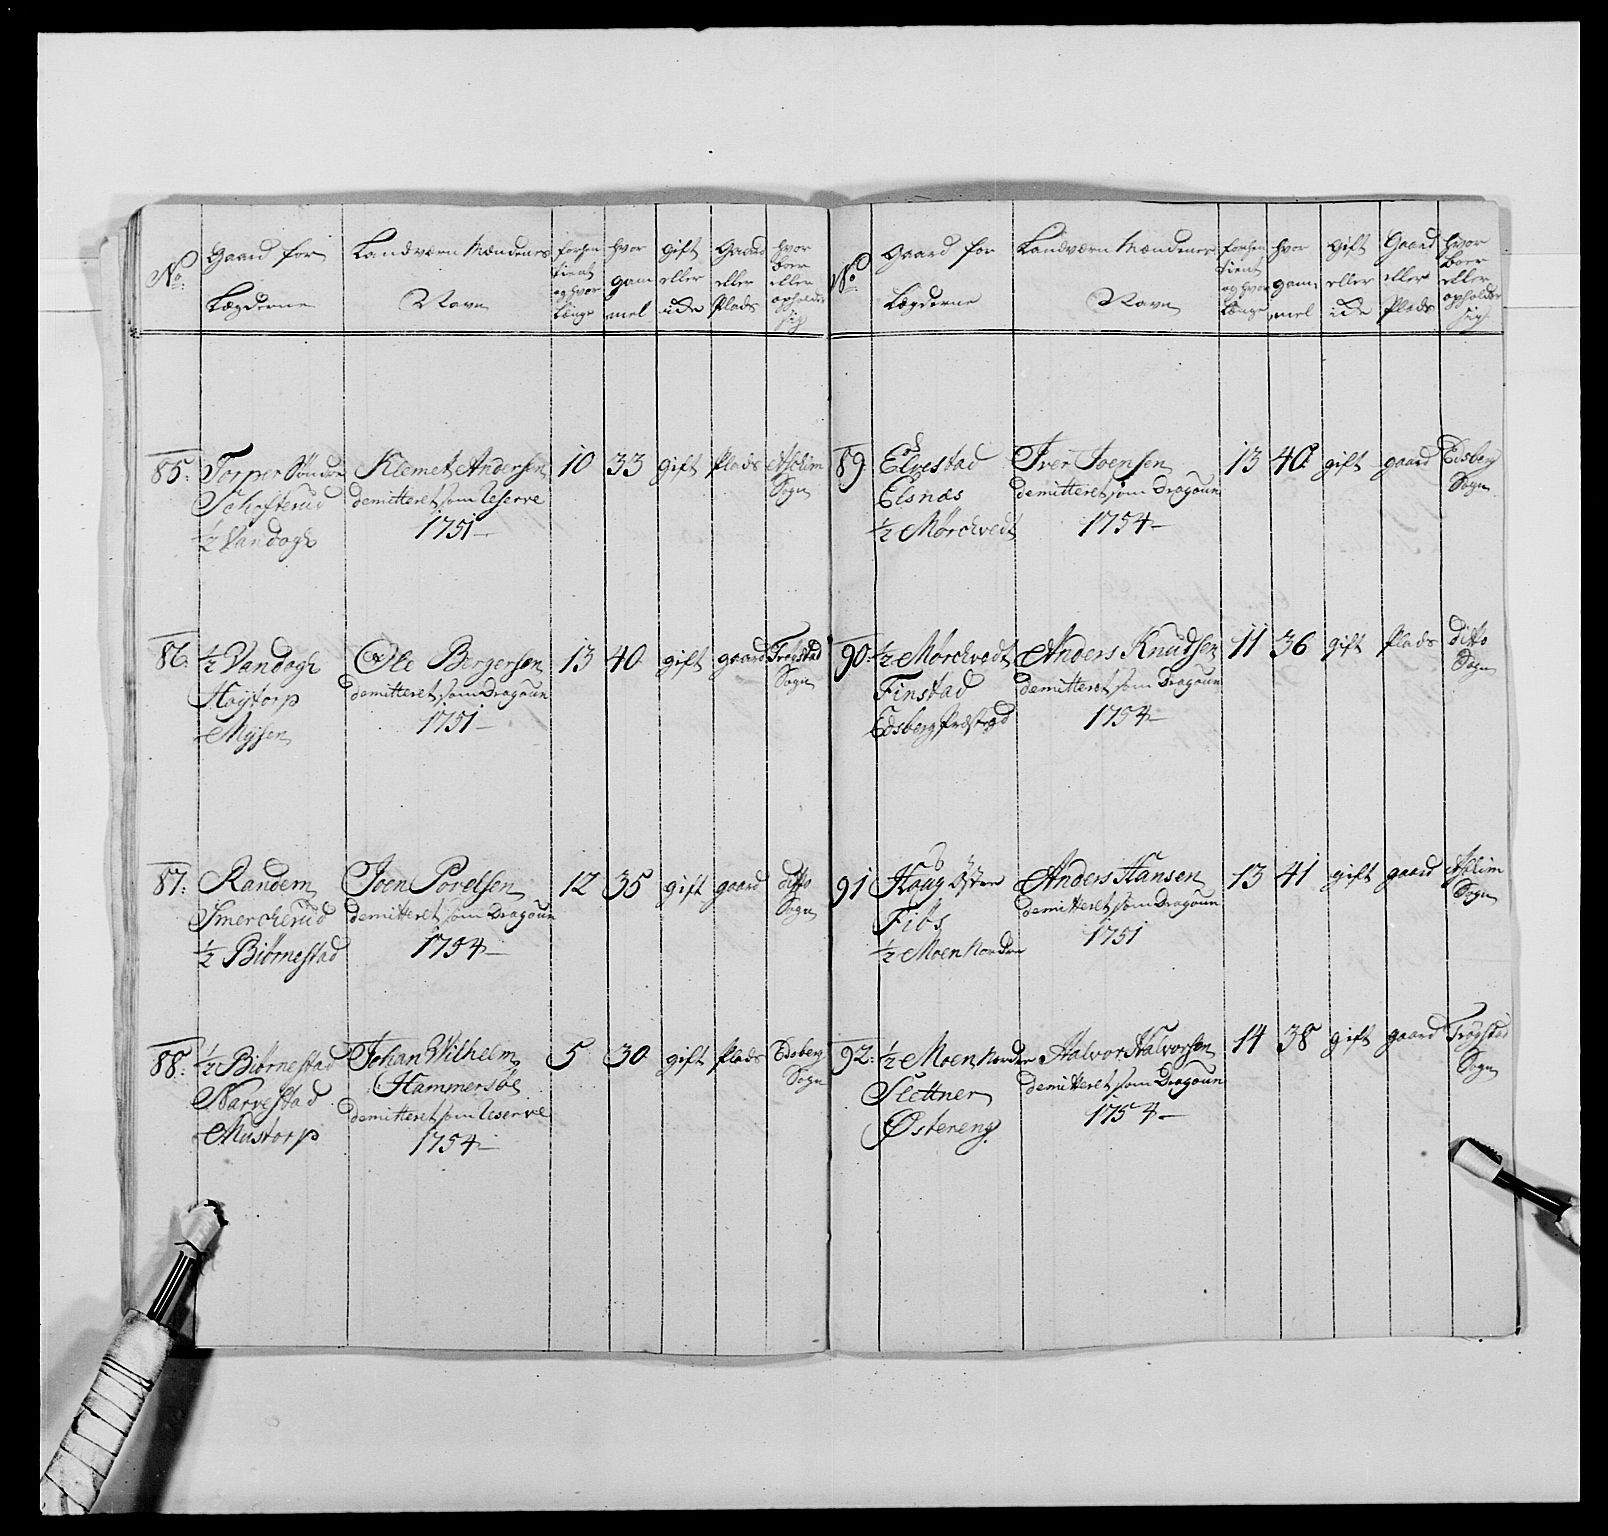 No.
Gaard for
Lægderne
Landværn Mændenes
Navn
forhen
tient
og hvor
Længe
hvor
gam
mel
gift
eller
icke
Gaard
eller
Plads
hvor
boer
eller
opholder
sig
85.
Torper Sønder
Schofterud
½ Vandogh
Klemet Andersen
demitteret som Reserve
1751
10
33
gift
plads
Aschim
Sogn
86.
½ Vandogh
Høytorp
Mysen
Ole Bergersen
demitteret som Dragoun
1751
13
40
gift
gaard
Trøgstad
Sogn
87.
Randem
Smercherud
½ Biørnestad
Joen Povelsen
demitteret som Dragoun
1754
12
35
gift
gaard
ditto
Sogn
88.
½ Biørnestad
Narvestad
Mustorp
Johan Wilhelm
Hammersøe
demitteret som Reserve
1754
5
30
gift
plads
Edsberg
Sogn
No.
Gaard for
Lægderne
Landværn Mændenes
Navn
forhen
tient
og hvor
Længe
hvor
gam
mel
gift
eller
icke
Gaard
eller
Plads
hvor
boer
eller
opholder
sig
89.
Elvestad
Elsnæs
½ Mørchvedt
Iver Joensen
demitteret som Dragoun
1754
13
40
gift
gaard
Edsberg
Sogn
90.
½ Mørchvedt
Finstad
Edsberg Præstegd
Anders Knudsen
demitteret som Dragoun
1754
11
36
gift
plads
ditto
Sogn
91
Houg Østre
Fibs
½ Moen Nordre
Anders Hansen
demitteret som Dragoun
1751
13
41
gift
gaard
Aschim
Sogn
92.
½ Moen Nordre
Slettner
Østereng
Halvor Halvorsen
demitteret som Dragoun
1754
14
38
gift
gaard
Trøgstad
Sogn